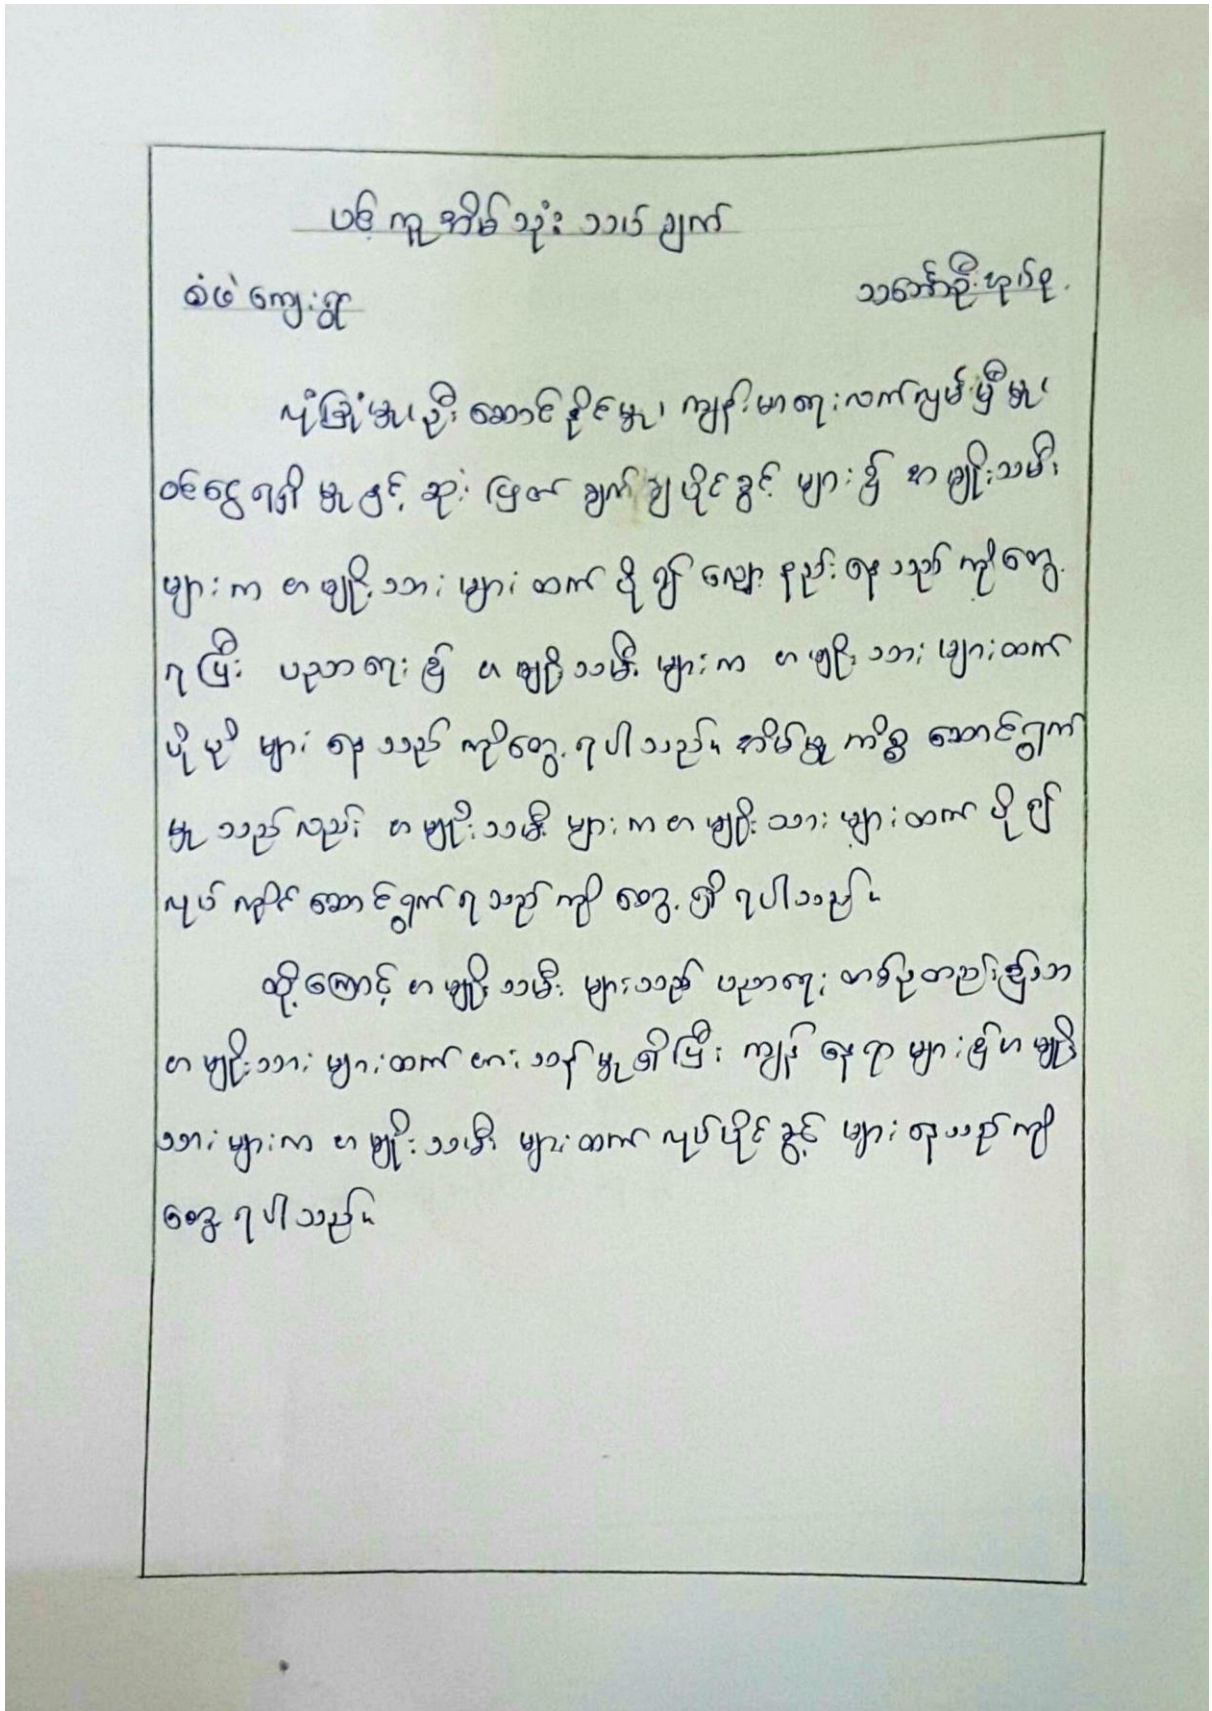 ပင့်ကူအိမ်သုံးသပ်ချက်
စံဖဲကျေးရွာ သင်္ဘောဦးဟုပ်စု
လုံခြုံမှု၊ ဦးဆောင်နိုင်မှု၊ ကျန်းမာရေးလက်လှမ်းမှီမှု၊
ဝင်ငွေရရှိမှုနှင့် ဆုံးဖြတ်ချက်ချပိုင်ခွင့်များ၌ အမျိုးသမီး
များက အမျိုးသားများထက် ပို၍ လျော့နည်းနေသည်ကိုတွေ့
ရပြီး ပညာရေး၌ အမျိုးသမီးများက အမျိုးသားများထက်
ပိုမိုများနေသည်ကိုတွေ့ရပါသည်။ အိမ်မှုကိစ္စဆောင်ရွက်
မှုသည်လည်း အမျိုးသမီးများက အမျိုးသားများထက် ပို၍
လုပ်ကိုင်ဆောင်ရွက်ရသည်ကို တွေ့ရှိရပါသည်။
ထို့ကြောင့် အမျိုးသမီးများသည် ပညာရေးတစ်ခုတည်း၌သာ
အမျိုးသားများထက် အားသန်မှုရှိပြီး ကျန်နေရာများ၌ အမျိုး
သားများက အမျိုးသမီးများထက် လုပ်ပိုင်ခွင့်များနေသည်ကို
တွေ့ရပါသည်။